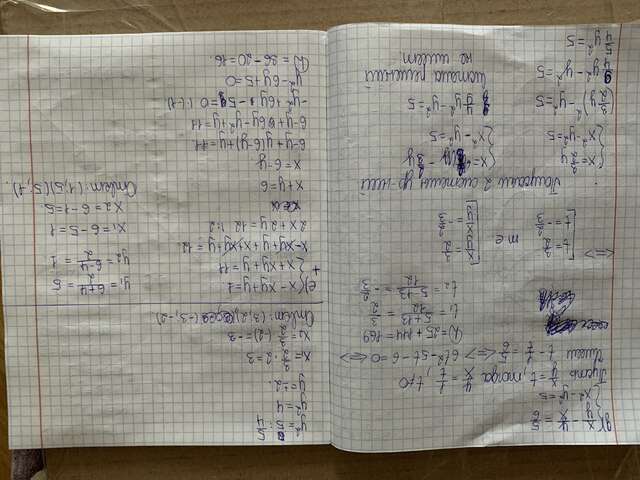 g) { x/y - y/x = 5/6
x² - y² = 5
Пусть x/y = t, тогда y/x = 1/t, t≠0
Имеем t - 1/t = 5/6 <=> 6t² - 5t - 6 = 0 <=>
D = 25 + 144 = 169
t₁ = (5+13)/12 = 3/2
t₂ = (5-13)/12 = -2/3
<=> [ t = 3/2 т.е [ x/y = 3/2
t = -2/3 x/y = -2/3
Получаем 2 системы ур-ний
{ x = 3/2 y { x = -2/3 y
x² - y² = 5 x² - y² = 5
(3/2 y)² - y² = 5 4/9 y² - y² = 5
9/4 y² - y² = 5 система решений
5/4 y² = 5 не имеет.
y² = 5 : 5/4
y² = 4
y = ±2
x₁ = 3/2 · 2 = 3
x₂ = 3/2 · (-2) = -3
Ответ: (3,2), (-3,-2)
e) { x - xy + y = 1
+ x + xy + y = 11
x - xy + y + x + xy + y = 12
2x + 2y = 12 |:2
x + y = 6
x = 6 - y
6 - y + y(6 - y) + y = 11
6 - y + 6y - y² + y = 11
-y² + 6y - 5 = 0 |·(-1)
y² - 6y + 5 = 0
D = 36 - 20 = 16
y₁ = (6+4)/2 = 5
y₂ = (6-4)/2 = 1
x₁ = 6 - 5 = 1
x₂ = 6 - 1 = 5
Ответ: (1,5)(5,1).